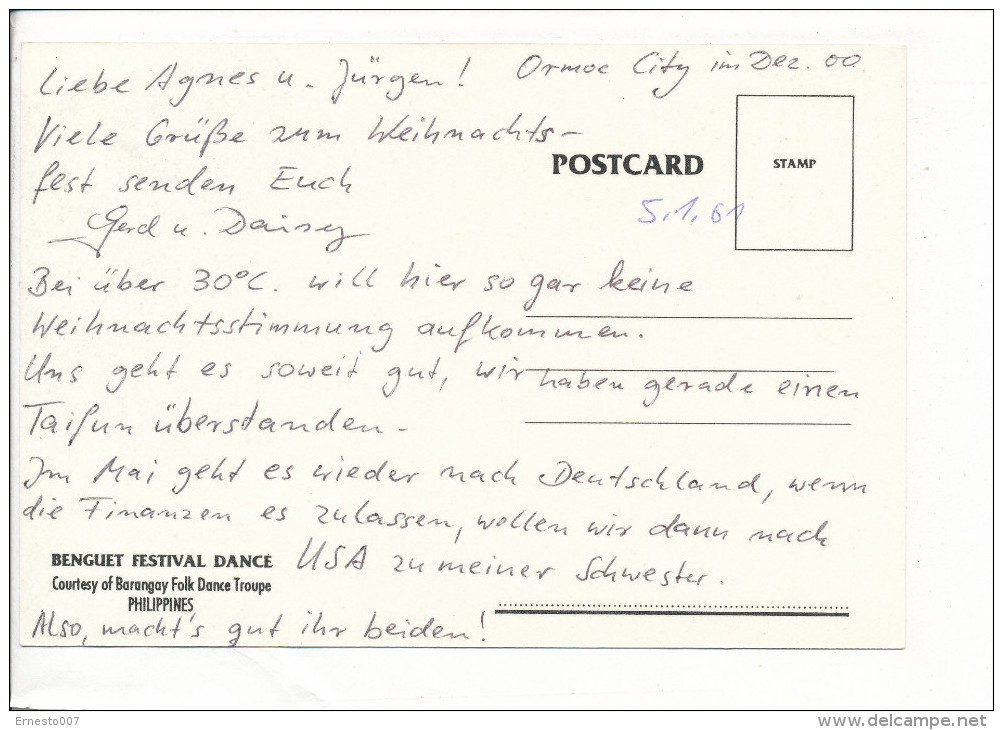 Liebe Agnes u. Jürgen! Ormoc City im Dez. 00
Viele Grüße zum Weihnachts-
fest senden Euch
Gerd u. Daisey
POSTCARD
STAMP
5.1.01
Bei über 30°C. will hier so gar keine
Weihnachtsstimmung aufkommen.
Uns geht es soweit gut, wir haben gerade einen
Taifun überstanden.
Im Mai geht es wieder nach Deutschland, wenn
die Finanzen es zulassen, wollen wir dann nach
USA zu meiner Schwester.
BENGUET FESTIVAL DANCE
Courtesy of Barangay Folk Dance Troupe
PHILIPPINES
Also, macht's gut ihr beiden!
Ernesto007
delcampe.net